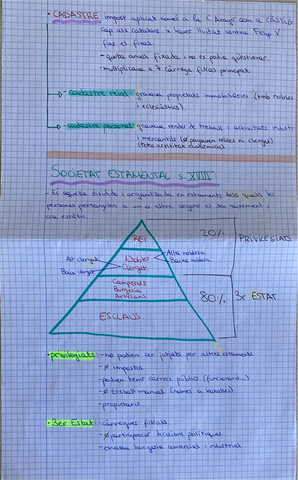 · CADASTRE: impost aplicat només a la C. Aragó com a càstig
cap als catalans x haver lluitat contra Felip V
fins el final.
- quota anual fixada i no es podia qüestionar.
- multiplicava x 7 càrrega fiscal principal.
→ cadastre real: gravava propietats immobiliàries (tmb nobles
i eclesiàstics)
→ cadastre personal: gravava rendes de treball i activitats industrials
i mercantils (Ø pagaven nobles ni clergat)
(tota activitat econòmica)
SOCIETAT ESTAMENTAL s. XVIII
- És aquella dividida i organitzada en estaments dels quals les
persones pertanyien a un o altre segons el seu naixement i
era estàtic.
REI
Alt clergat
Baix clergat
Nobles
Clergat
Alta noblesa
Baixa noblesa
20%
PRIVILEGIATS
Camperols
Burgesia
Artisans
ESCLAUS
80%
3r ESTAT
· privilegiats: - no podien ser jutjats per altres estaments
- Ø impostos
- podien tenir càrrecs públics (funcionari...)
- Ø treball manual (només la batalla)
- propietaris.
· 3er Estat: - càrregues fiscals
- Ø participació decisions polítiques
- escassa burgesia comercial i industrial